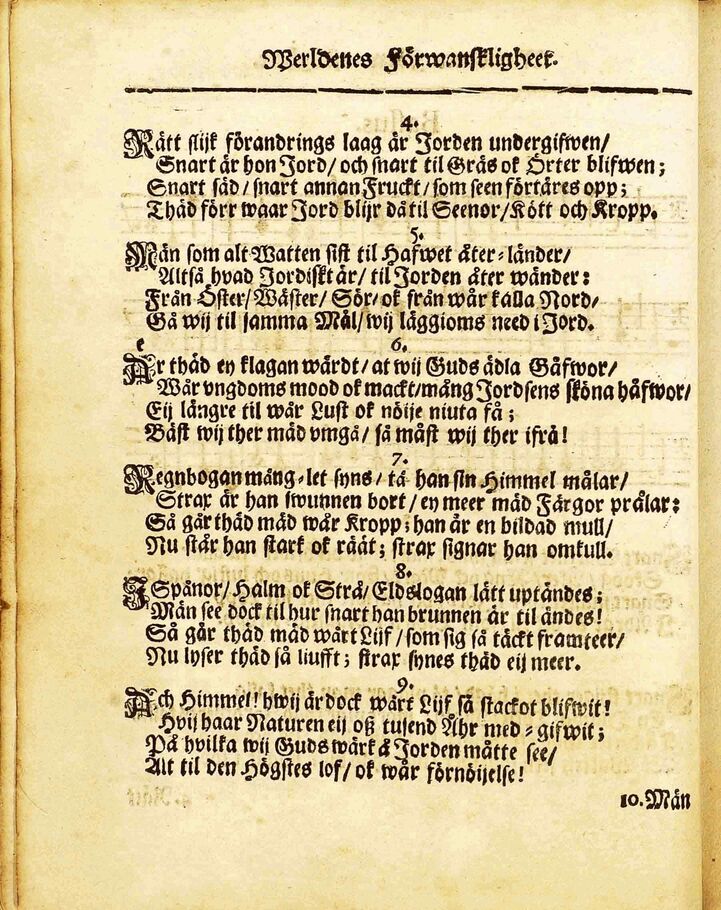 Werldenes Förwanskligheet.
4.
Rätt slijk förandrings laag är Jorden undergifwen/
Snart är hon Jord/ och snart til Gräs ok Örter blifwen;
Snart säd/ snart annan Fruckt/ som seen förtäres opp;
Thäd förr waar Jord blijr då til Seenor/ Kött och Kropp.
5.
Män som alt Watten sist til Hafwet åter-länder/
Altså hvad Jordiskt är/ til Jorden åter wänder:
Från Öster/ Wäster/ Sör/ ok från wår kalla Nord/
Gå wij til samma Mål/ wij läggioms need i Jord.
6.
Är thäd ey klagan wärdt/ at wij Guds ädla Gåfwor/
Wår vngdoms mood ok mackt/ mång Jordsens sköna håfwor/
Eij längre til wår Lust ok nöije niuta få;
Bäst wij ther mäd vmgå/ så måst wij ther ifrå!
7.
Regnbogan mäng-let syns/ tå han sin Himmel målar/
Strax är han swunnen bort/ ey meer mäd Färgor prålar:
Så går thäd mäd wår Kropp; han är en bildad mull/
Nu står han stark ok räät; strax signar han omkull.
8.
I Spånor/ Halm ok Strå/ Eldslogan lätt uptändes;
Män see dock til hur snart han brunnen är til ändes!
Så går thäd mäd wårt Lijf/ som sig så täckt framteer/
Nu lyser thäd så liufft; strax synes thäd eij meer.
9.
Ach Himmel! hwij är dock wårt Lijf så stackot blifwit!
Hvij haar Naturen eij oß tusend Åhr med-gifwit;
På hvilka wij Guds wärk å Jorden måtte see/
Alt til den Högstes lof/ ok wår förnöijelse!
10. Män